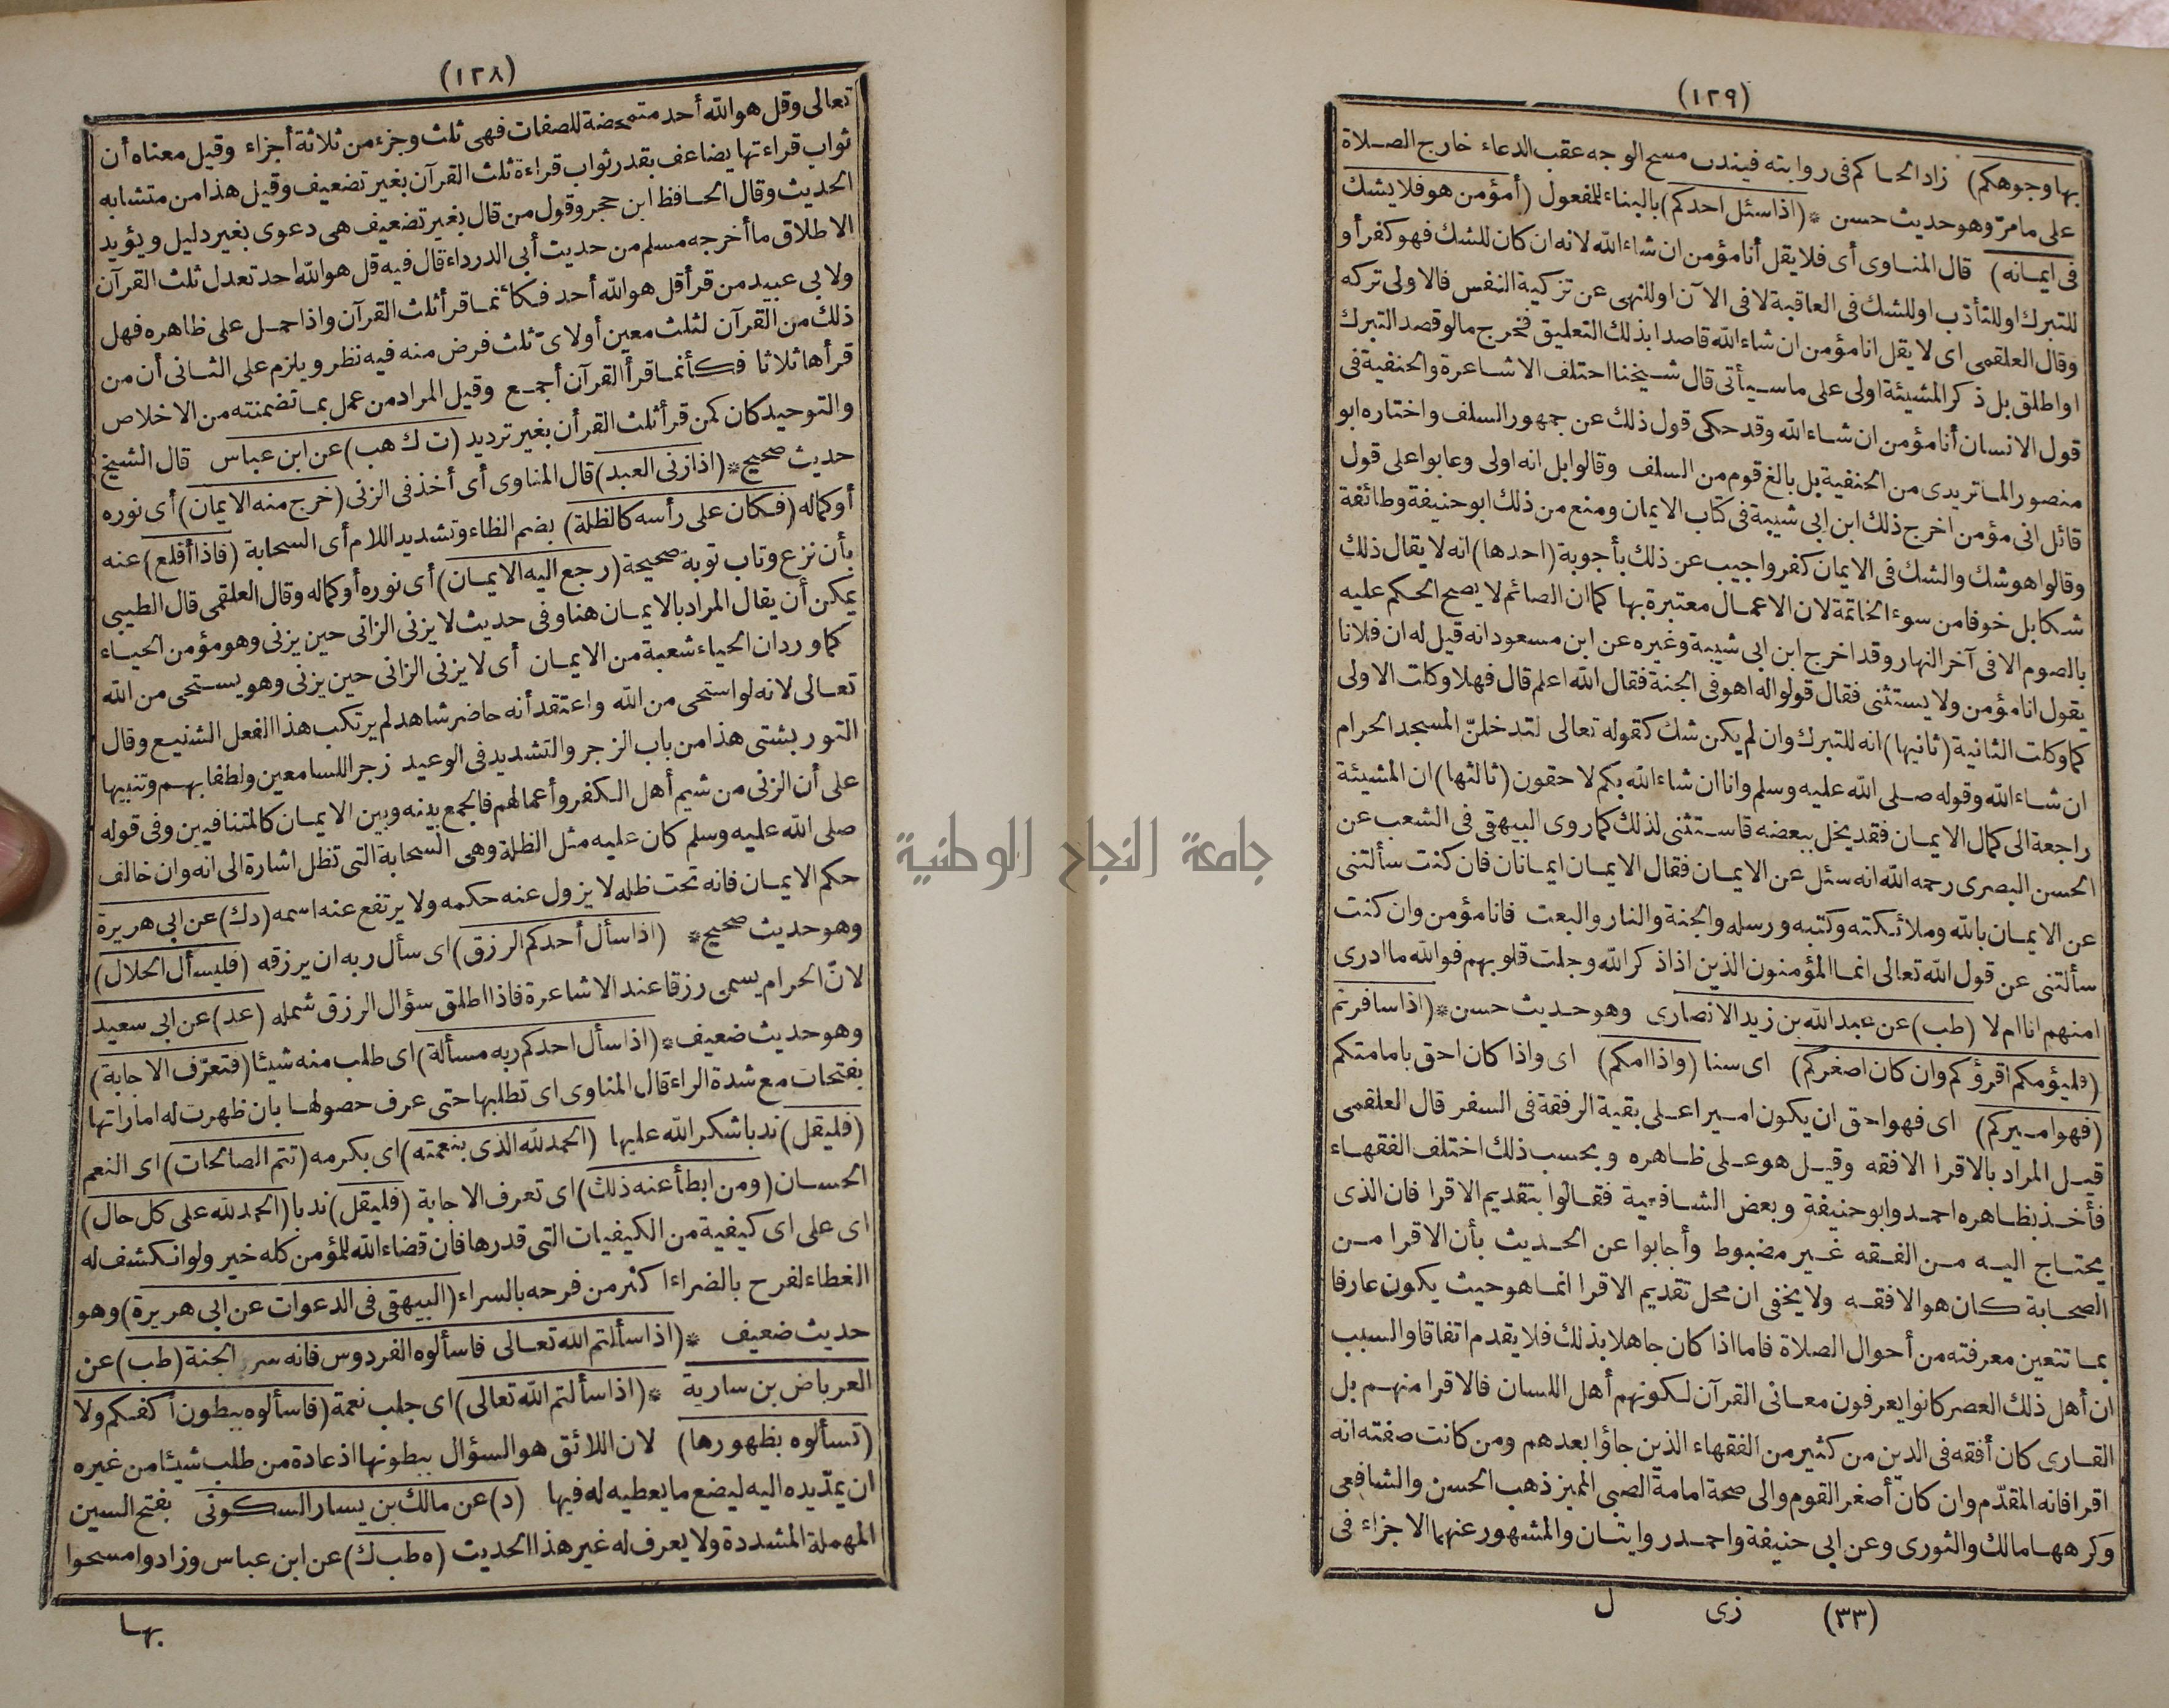 (١٢٨)
تعالى وقل هو الله أحد متمحضة للصفات فهى ثلث وجزء من ثلاثة أجزاء وقيل معناه أن
ثواب قراءتها يضاعف بقدر ثواب قراءة ثلث القرآن بغير تضعيف وقيل هذا من متشابه
الحديث وقال الحافظ ابن حجر وقول من قال بغير تضعيف هى دعوى بغير دليل ويؤيد
الاطلاق ما أخرجه مسلم من حديث أبى الدرداء قال فيه قل هو الله احد تعدل ثلث القرآن
ولابى عبيد من قرأ قل هو الله أحد فكأنما قرأ ثلث القرآن واذا حمل على ظاهره فهل
ذلك من القرآن لثلث معين أولاىّ ثلث فرض منه فيه نظر ويلزم على الثانى أن من
قرأها ثلاثا فكأنما قرأ القرآن أجمع وقيل المراد من عمل بما تضمنته من الاخلاص
والتوحيد كان كمن قرأ ثلث القرأن بغير ترديد (ت ك هب) عن ابن عباس قال الشيخ
حديث صحيح * (اذا زنى العبد) قال المناوى أى أخذ فى الزنى (خرج منه الايمان) أى نوره
أو كماله (فكان على رأسه كالظلة) بضم الظاء وتشديد اللام أى السحابة (فاذا أقلع) عنه
بأن نزع وتاب توبة صحيحة (رجع اليه الايمان) أى نوره أو كماله وقال العلقمى قال الطيبى
يمكن أن يقال المراد بالايمان هنا وفى حديث لا يزنى الزانى حين يزنى وهو مؤمن الحياء
كما ورد ان الحياء شعبة من الايمان أى لا يزنى الزانى حين يزنى وهو يستحى من الله
تعالى لانه لو استحى من الله واعتقد أنه حاضر شاهد لم يرتكب هذا الفعل الشنيع وقال
التوربشتى هذا من باب الزجر والتشديد فى الوعيد زجرا للسامعين ولطفا بهم وتنبيها
على أن الزنى من شيم أهل الكفر وأعمالهم فالجمع بينه وبين الايمان كالمتنافيين وفى قوله
صلى الله عليه وسلم كان عليه مثل الظلة وهى السحابة التى تظل اشارة الى انه وان خالف
حكم الايمان فانه تحت ظله لا يزول عنه حكمه ولا يرتفع عنه اسمه (دك) عن ابى هريرة
وهو حديث صحيح * (اذا سأل أحدكم الرزق) اى سأل ربه ان يرزقه (فليسأل الحلال)
لانّ الحرام يسمى رزقا عند الاشاعرة فاذا اطلق سؤال الرزق شمله (عد) عن ابى سعيد
وهو حديث ضعيف * (اذا سأل احدكم ربه مسألة) اى طلب منه شيئا (فتعرّف الاجابة)
بفتحات مع شدة الراء قال المناوى اى تطلبها حتى عرف حصولها بان ظهرت له اماراتها
(فليقل) ندبا شكر الله عليها (الحمد لله الذى بنعمته) اى بكرمه (تتم الصالحات) اى النعم
الحسان (ومن ابطأ عنه ذلك) اى تعرف الاجابة (فليقل) ندبا (الحمد لله على كل حال)
اى على اى كيفية من الكيفيات التى قدرها فان قضاء الله للمؤمن كله خير ولو انكشف له
الغطاء لفرح بالضراء اكثر من فرحه بالسراء (البيهقى فى الدعوات عن ابى هريرة) وهو
حديث ضعيف * (اذا سألتم الله تعالى فاسألوه الفردوس فانه سر الجنة (طب) عن
العرباض بن سارية * (اذا سألتم الله تعالى) اى جلب نعمة (فاسألوه ببطون أكفكم ولا
(تسألوه بظهورها) لان اللائق هو السؤال ببطونها اذ عادة من طلب شيئا من غيره
ان يمدّ يده اليه ليضع ما يعطيه له فيها (د) عن مالك بن يسار السكونى بفتح السين
المهملة المشددة ولا يعرف له غير هذا الحديث (ه طب ك) عن ابن عباس وزادوا مسحوا
بها
(١٢٩)
بها وجوهكم) زاد الحاكم فى روايته فيندب مسح الوجه عقب الدعاء خارج الصلاة
على ما مرّ وهو حديث حسن * (اذا سئل احدكم) بالبناء للمفعول (أمؤمن هو فلا يشك
فى ايمانه) قال المناوى أى فلا يقل أنا مؤمن ان شاء الله لانه ان كان للشك فهو كفر أو
للتبرك او للتأدب او للشك فى العاقبة لا فى الآن او للنهى عن تزكية النفس فالاولى تركه
وقال العلقمى اى لا يقل انا مؤمن ان شاء الله قاصدا بذلك التعليق فخرج ما لو قصد التبرك
او اطلق بل ذكر المشيئة اولى على ما سيأتى قال شيخنا اختلف الاشاعرة والحنفية فى
قول الانسان أنا مؤمن ان شاء الله وقد حكى قول ذلك عن جمهور السلف واختاره ابو
منصور الماتريدى من الحنفية بل بالغ قوم من السلف وقالوا بل انه اولى وعابوا على قول
قائل انى مؤمن اخرج ذلك ابن ابى شيبة فى كتاب الايمان ومنع من ذلك ابو حنيفة وطائفة
وقالوا هو شك والشك فى الايمان كفر واجيب عن ذلك بأجوبة (احدها) انه لا يقال ذلك
شكا بل خوفا من سوء الخاتمة لان الاعمال معتبرة بها كما ان الصائم لا يصح الحكم عليه
بالصوم الا فى آخر النهار وقد اخرج ابن ابى شيبة وغيره عن ابن مسعود انه قيل له ان فلانا
يقول انا مؤمن ولا يستثنى فقال قولوا له اهو فى الجنة فقال الله اعلم قال فهلا وكلت الاولى
كما وكلت الثانية (ثانيها) انه للتبرك وان لم يكن شك كقوله تعالى لتدخلنّ المسجد الحرام
ان شاء الله وقوله صلى الله عليه وسلم وانا ان شاء الله بكم لاحقون (ثالثها) ان المشيئة
راجعة الى كمال الايمان فقد يخل ببعضه فاستثنى لذلك كما روى البيهقى فى الشعب عن
الحسن البصرى رحمه الله انه سئل عن الايمان فقال الايمان ايمانان فان كنت سألتنى
عن الايمان بالله وملائكته وكتبه ورسله والجنة والنار والبعث فانا مؤمن وان كنت
سألتنى عن قول الله تعالى انما المؤمنون الذين اذا ذكر الله وجلت قلوبهم فوالله ما ادرى
امنهم انا ام لا (طب) عن عبد الله بن زيد الانصارى وهو حديث حسن * (اذا سافرتم
(فليؤمكم اقرؤكم وان كان اصغركم) اى سنا (واذا امكم) اى واذا كان احق بامامتكم
(فهو اميركم) اى فهو احق ان يكون اميرا على بقية الرفقة فى السفر قال العلقمى
قيل المراد بالاقرا الافقه وقيل هو على ظاهره وبحسب ذلك اختلف الفقهاء
فأخذ بظاهره احمد وابو حنيفة وبعض الشافعية فقالوا بتقديم الاقرا فان الذى
يحتاج اليه من الفقه غير مضبوط وأجابوا عن الحديث بأن الاقرا من
الصحابة كان هو الافقه ولا يخفى ان محل تقديم الاقرا انما هو حيث يكون عارفا
بما تتعين معرفته من أحوال الصلاة فاما اذا كان جاهلا بذلك فلا يقدم اتفاقا والسبب
ان أهل ذلك العصر كانوا يعرفون معانى القرآن لكونهم أهل اللسان فالاقرا منهم بل
القارى كان أفقه فى الدين من كثير من الفقهاء الذين جاؤا بعدهم ومن كانت صفته انه
اقرا فانه المقدّم وان كان أصغر القوم والى صحة امامة الصبى المميز ذهب الحسن والشافعى
وكرهها مالك والثورى وعن ابى حنيفة واحمد روايتان والمشهور عنهما الاجزاء فى
(٣٣) زى ل
جامعة النجاح الوطنية